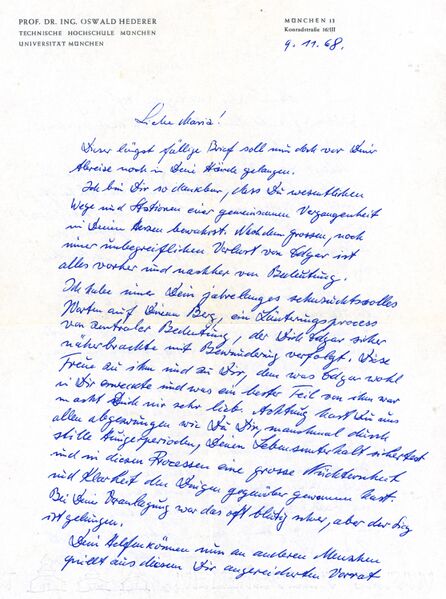 PROF. DR. ING. OSWALD HEDERER
TECHNISCHE HOCHSCHULE MÜNCHEN
UNIVERSITÄT MÜNCHEN
MÜNCHEN 13
Konradstraße 16/III
9.11.68.
Liebe Maria!
Dieser längst fällige Brief soll nun doch vor Deiner
Abreise noch in Deine Hände gelangen.
Ich bin Dir so dankbar, dass Du wesentlichen
Wege und Stationen einer gemeinsamen Vergangenheit
in Deinem Herzen bewahrst. Nach dem grossen, noch
immer unbegreiflichen Verlust von Edgar ist
alles vorher und nachher von Bedeutung.
Ich habe immer Dein jahrelanges sehnsuchtsvolles
Warten auf Deinem Berg, ein Läuterungsprocess
von zentraler Bedeutung, der Dich Edgar sicher
näherbrachte mit Bewunderung verfolgt. Diese
Treue zu ihm und zu Dir, dem was Edgar wohl
in Dir erweckte und was ein bester Teil von ihm war
macht Dich mir sehr lieb. Achtung hast Du uns
allen abgezwungen wie Du Dir, manchmal durch
stille, Deinen Lebensunterhalt sichertest
und in diesen Prozessen eine grosse Nüchternheit
und Klarheit den Dingen gegenüber gewonnen hast.
Bei Deiner Veranlagung war das oft blutig schwer, aber der Sieg
ist gelungen.
Dein Helfenkönnen nun an anderen Menschen
quillt aus diesem Dir angereicherten Vorrat